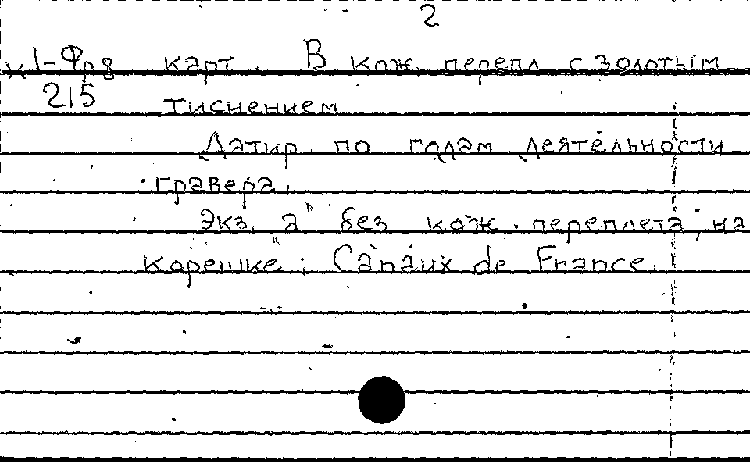 2
К 1-Фрд карт. В кож. перепл с золотым
215 тиснением
Датир. по годам деятельности
гравера.
Экз. "а" без кож. переплета, на
корешке: Canaux de France.